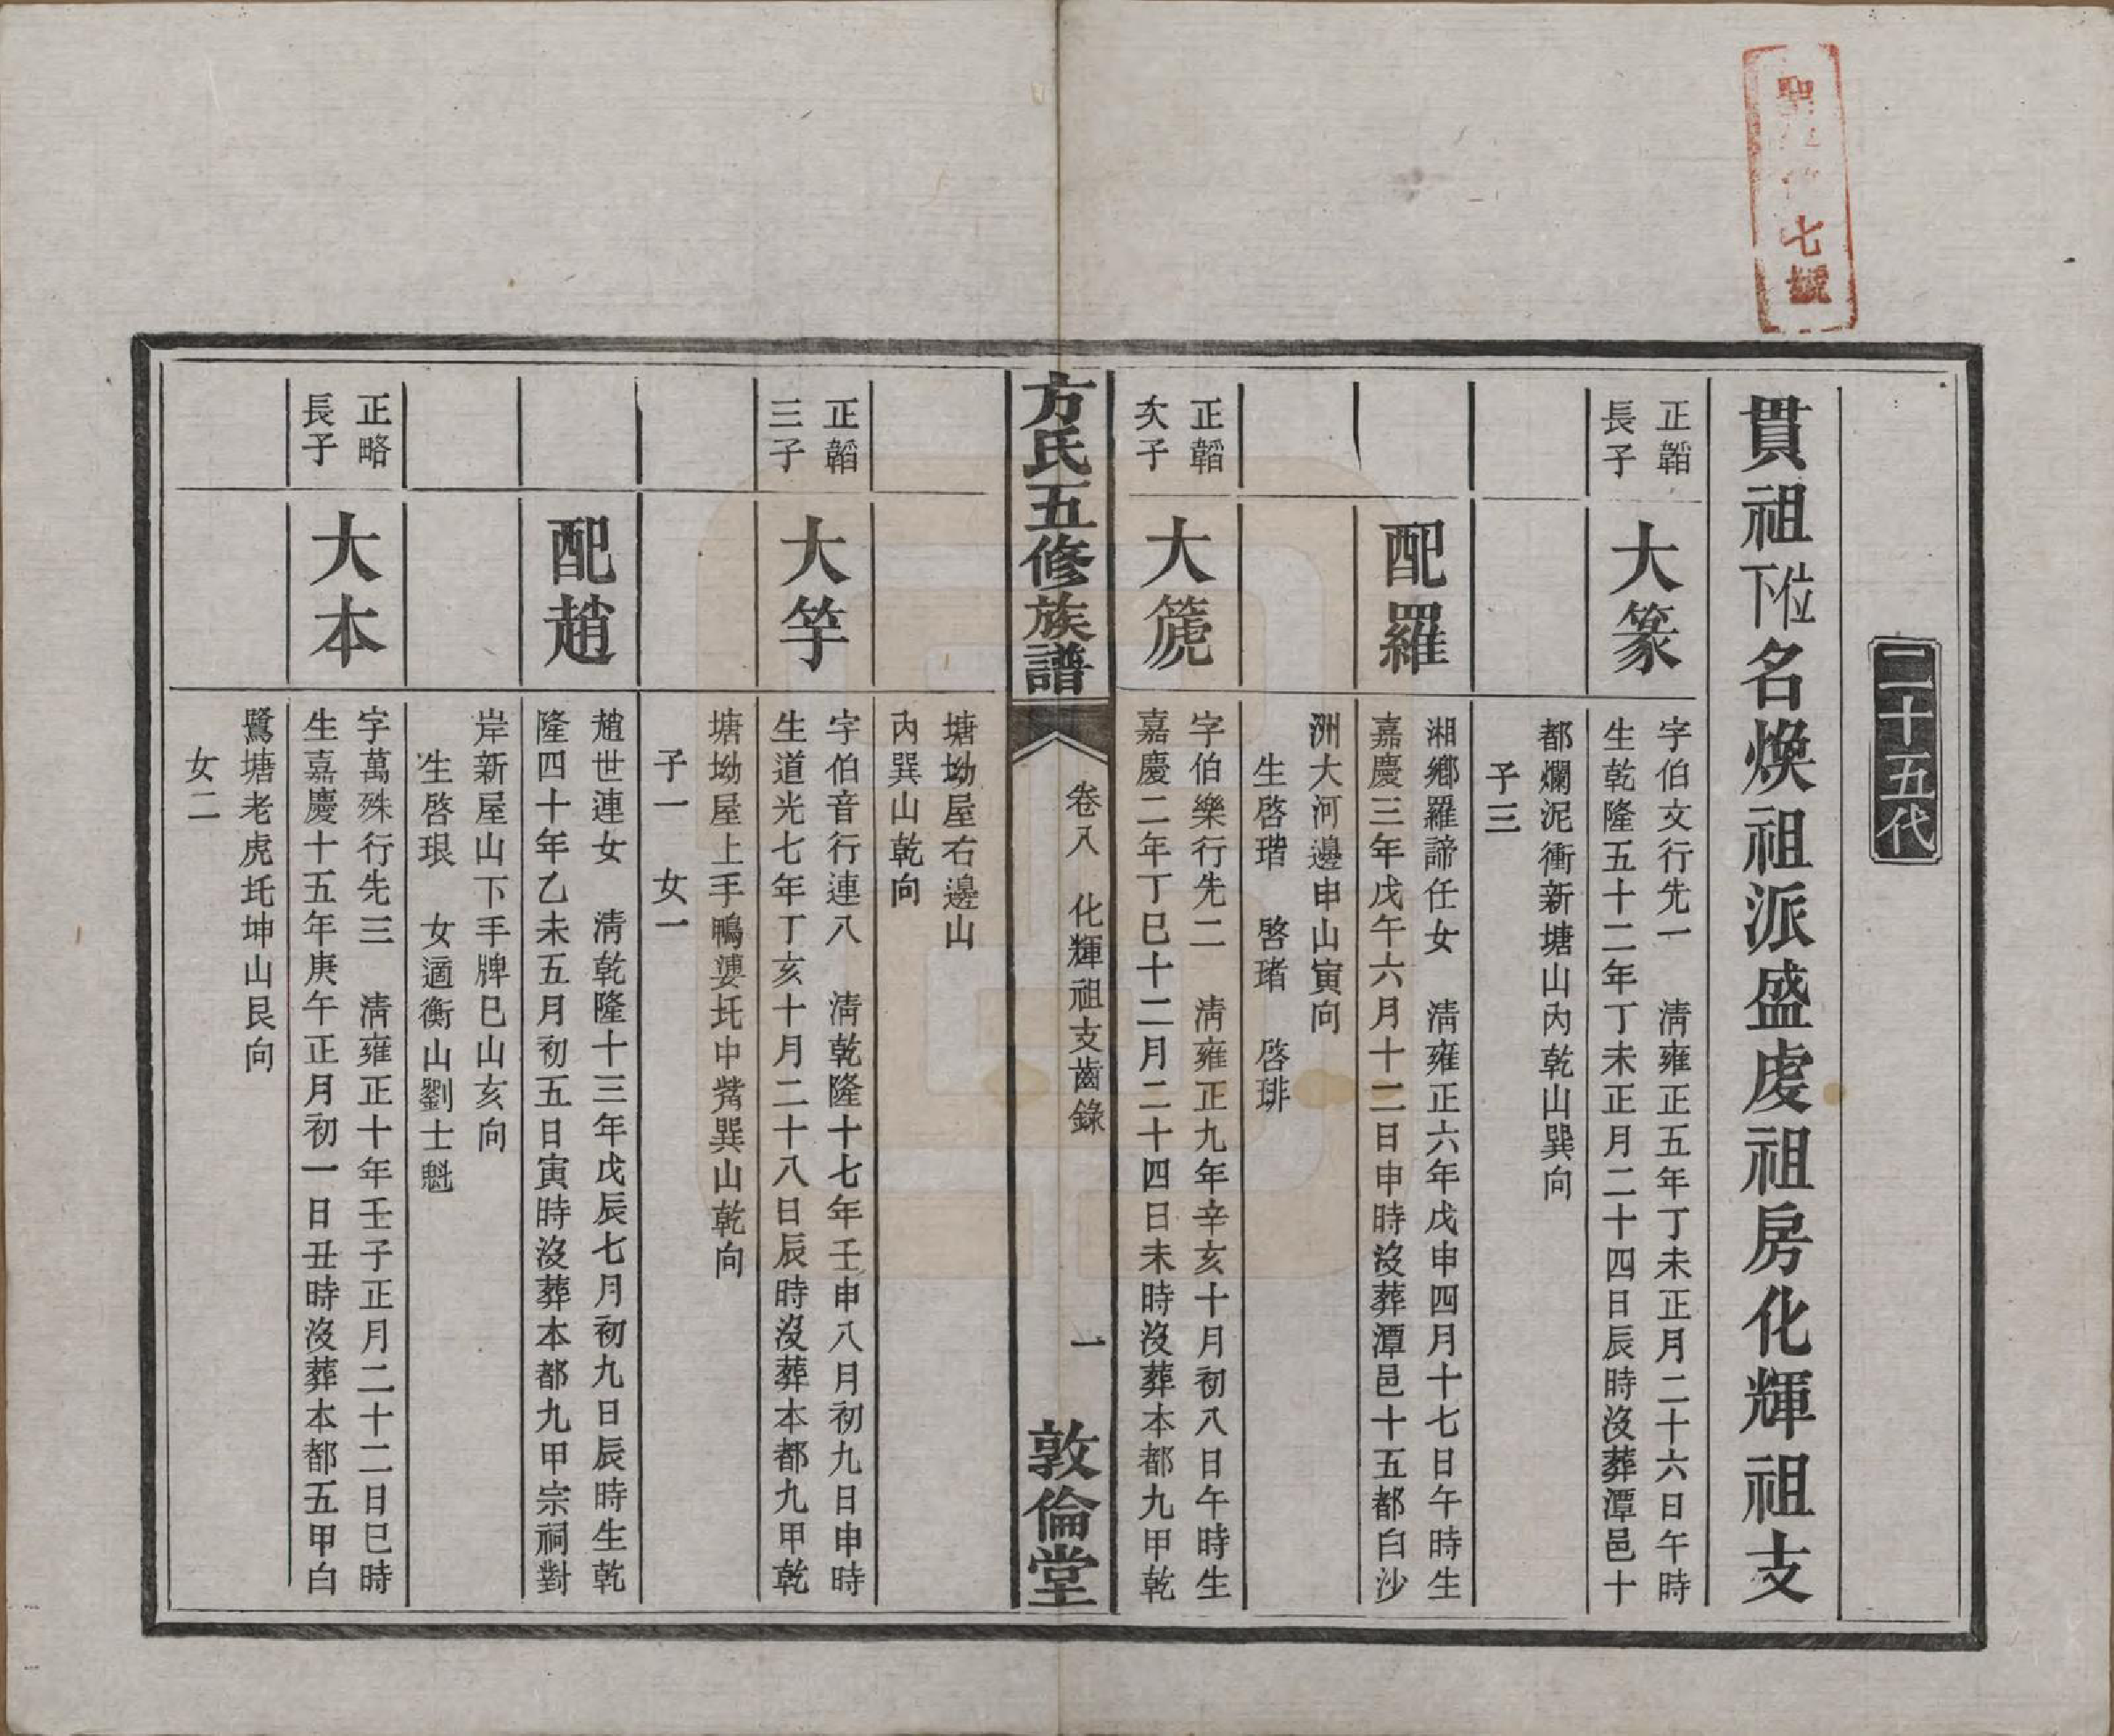 七號
二十五代
貫祖下位名煥祖派盛虔祖房化輝祖支
正韜
長子
大篆
字伯文行先一 淸雍正五年丁未正月二十六日午時
生乾隆五十二年丁未正月二十四日辰時沒葬潭邑十
都爛泥衝新塘山內乾山巽向
子三
配羅
湘鄉羅諦任女 淸雍正六年戊申四月十七日午時生
嘉慶三年戊午六月十二日申時沒葬潭邑十五都白沙
洲大河邊申山寅向
生啓瑎 啓瑎 啓琲
正韜
次子
大篪
字伯樂行先二 淸雍正九年辛亥十月初八日午時生
嘉慶二年丁巳十二月二十四日未時沒葬本都九甲乾
塘坳屋右邊山
內巽山乾向
方氏五修族譜
卷八 化輝祖支齒錄
一
敦倫堂
正韜
三子
大竽
字伯音行連八 淸乾隆十七年壬申八月初九日申時
生道光七年丁亥十月二十八日辰時沒葬本都九甲乾
塘坳屋上手鴨婆圫中嘴巽山乾向
子一 女一
配趙
趙世連女 淸乾隆十三年戊辰七月初九日辰時生乾
隆四十年乙未五月初五日寅時沒葬本都九甲宗祠對
岸新屋山下手牌巳山亥向
生啓珢 女適衡山劉士魁
正略
長子
大本
字萬殊行先三 淸雍正十年壬子正月二十二日巳時
生嘉慶十五年庚午正月初一日丑時沒葬本都五甲白
鷺塘老虎圫坤山艮向
女二